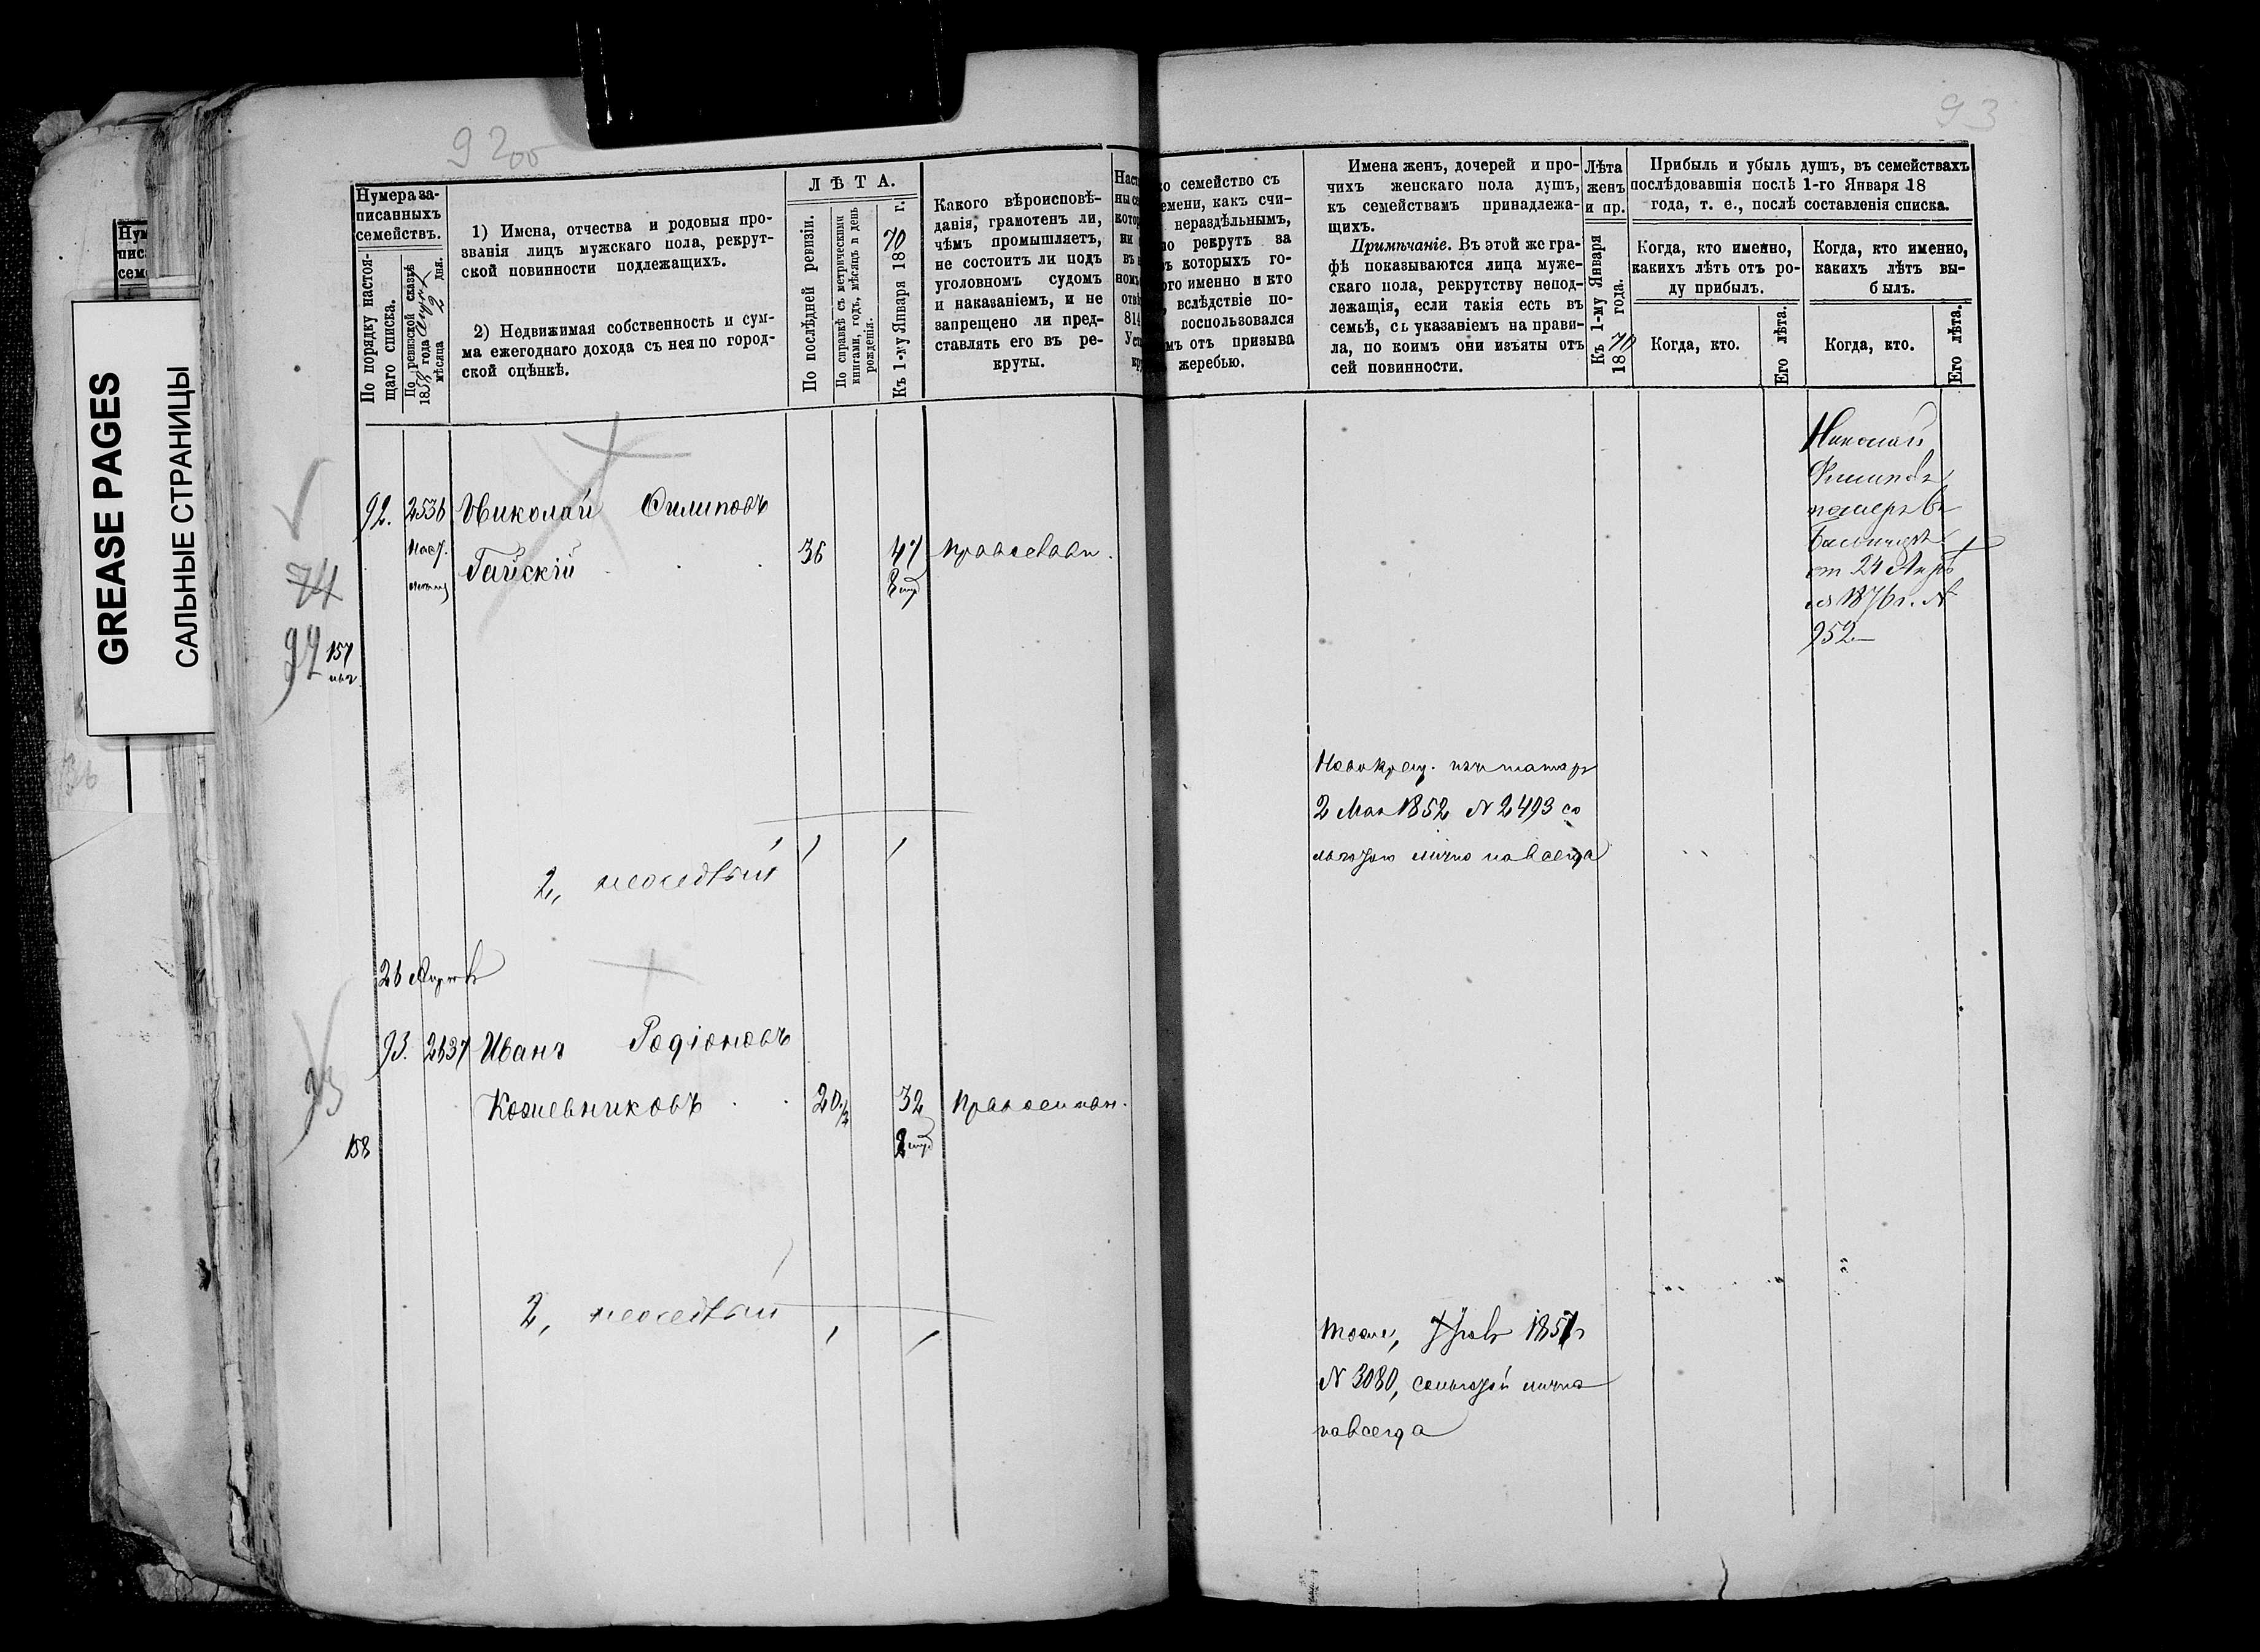 GREASE PAGES
САЛЬНЫЕ СТРАНИЦЫ
92об
93
Нумера за-
писанныхъ
семействъ.
По порядку настоя-
щаго списка.
По ревизской сказкѣ
1858 года
мѣсяца 2 дня.
1) Имена, отчества и родовыя про-
званія лицъ мужскаго пола, рекрут-
ской повинности подлежащихъ.
2) Недвижимая собственность и сум-
ма ежегоднаго дохода съ нея по город-
ской оцѣнкѣ.
ЛѢТА.
По послѣдней ревизіи.
По справкѣ съ метрическими
книгами, годъ, мѣсяцъ и день
рожденія.
Къ 1-му Января 1870 г.
Какого вѣроисповѣ-
данія, грамотенъ ли,
чѣмъ промышляетъ,
не состоитъ ли подъ
уголовномъ судомъ
и наказаніемъ, и не
запрещено ли пред-
ставлять его въ ре-
круты.
семейство съ
какъ счи-
нераздѣльнымъ,
рекрутъ за
которыхъ го-
именно и кто
вслѣдствіе по-
воспользовался
отъ призыва
жеребью.
Имена женъ, дочерей и про-
чихъ женскаго пола душъ,
къ семействамъ принадлежа-
щихъ.
Примѣчаніе. Въ этой же гра-
фѣ показываются лица муже-
скаго пола, рекрутству непод-
лежащія, если такія есть въ
семьѣ, съ указаніемъ на прави-
ла, по коимъ они изъяты отъ
сей повинности.
Лѣта
женъ
и пр.
Къ 1-му Января
1870 года.
Прибыль и убыль душъ, въ семействахъ
послѣдовавшія послѣ 1-го Января 18
года, т. е., послѣ составленія списка.
Когда, кто именно,
какихъ лѣтъ отъ ро-
ду прибылъ.
Когда, кто именно,
какихъ лѣтъ вы-
былъ.
Когда, кто.
Его лѣта.
Когда, кто.
Его лѣта.
92. 2536 Николай Филиповъ
Гайскій 36 47 православн.
74
92
157
Николай
Филиповъ
померъ
от 24
1876 г. №
952
Новокрещ. изъ татаръ
2 Мая 1852 № 2493 со
льготою лично навсегда
2, 1 1
26
93. 2637 Иванъ Родіоновъ
Кожевниковъ 20 1/2 32 Православн.
93
158
2, 1 1
Тоже, 1857
№ 3080, со льготой лично
навсегда